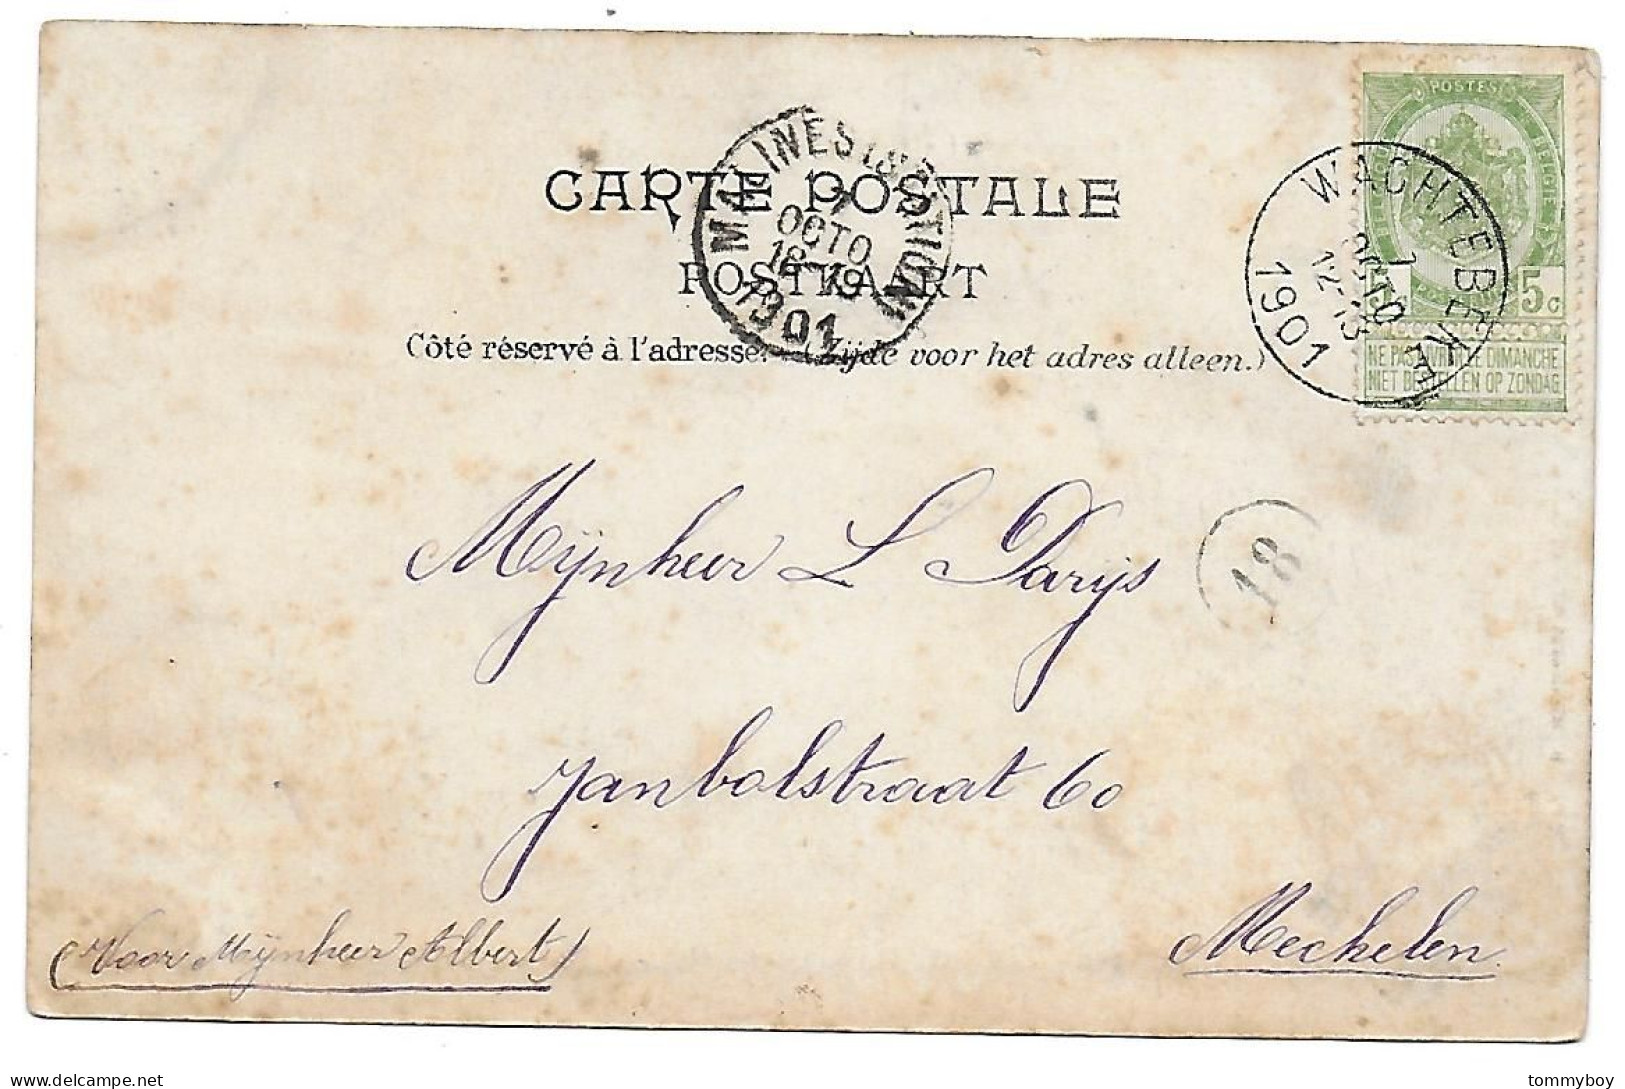 CARTE POSTALE
POSTKAART
Côté réservé à l'adresse. (Zijde voor het adres alleen.)
MALINES (STATION)
7
OCTO
18-19
1901
POSTES
BELGIQUE BELGIË
5 5c
NE PAS LIVRER LE DIMANCHE
NIET BESTELLEN OP ZONDAG
WACHTEBEKE
7
OCTO
12-13
1901
18
Mijnheer L Parijs
Janbolstraat 60
Mechelen
(Voor Mijnheer Albert)
tommyboy
delcampe.net